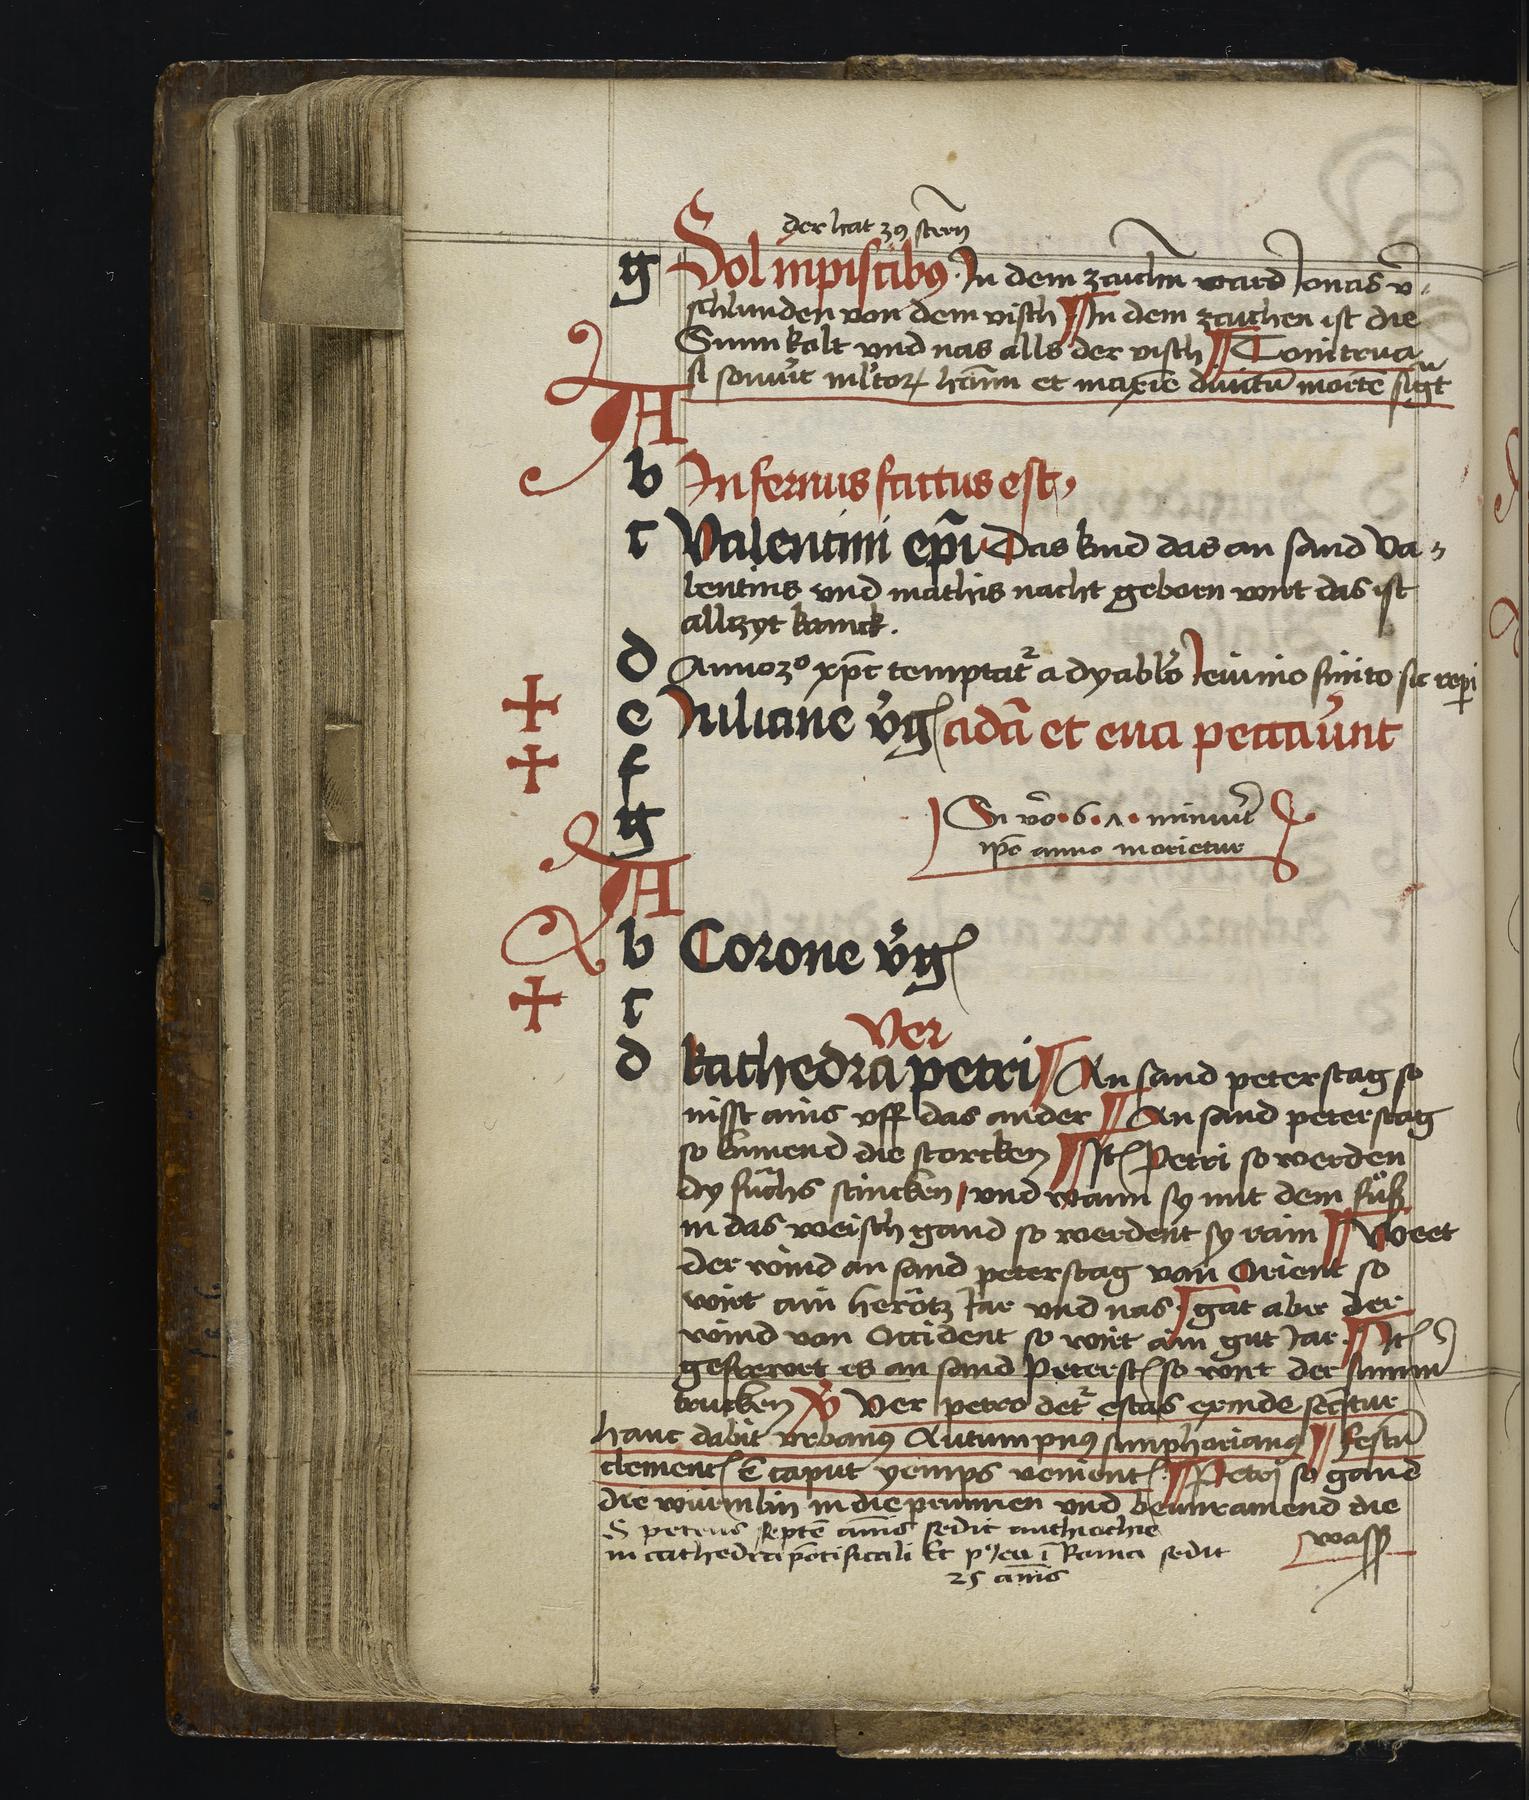 der hat 39 stern
g Sol in piscibus. In dem zaichn ward Jonas v̄
schlunden von dem visch ¶ In dem zaichen ist die
Sunn kalt und nas alls der visch ¶ Tonitrua
si sonuīt ml̄tor hōīm et maxīe divitū mortē sigt
A
b Infernus factus est.
c Valentini ep̄i Das kind das an sand Va-
lentins und mathis nacht geborn wirt das ist
allzyt kranck.
d Anno 30 xp̄c temptatr a dyablo Jeiunio finito
e Juliane v̄g adā et eva peccav̄unt
f
g Si vō .6.A. minuīt
ip̄o anno morietur
A
b Corone v̄g
c
Ver
d kathedra petri ¶ An sand peterstag so
nisst ains uff das ander ¶ An sand peterstag
so kumend die storcken ¶ It Petri so werden
dy fuchs stincken und wann sy mit dem fuß
in das weisch gand so werdent sy rain ¶ Weet
der wind an sand peterstag von Orient so
wirt ain herötz Jar und nas gat aber der
wind von Occident so wirt ain gut Jar ¶ It
gefrewrt es an sand Peterst so wirt der sumer
trucken Ver petro detr estas exinde secntur
hanc dabit urbanus Autumpnus simphorianus ¶ Festū
clement ē caput yemps venient ¶ Petri so gand
die würmlin in die prunnen und beunramend die
wass
S petrus septē annis sedit anthiochie
in cathedra pōtificali Et ī Roma sedit
25 annis